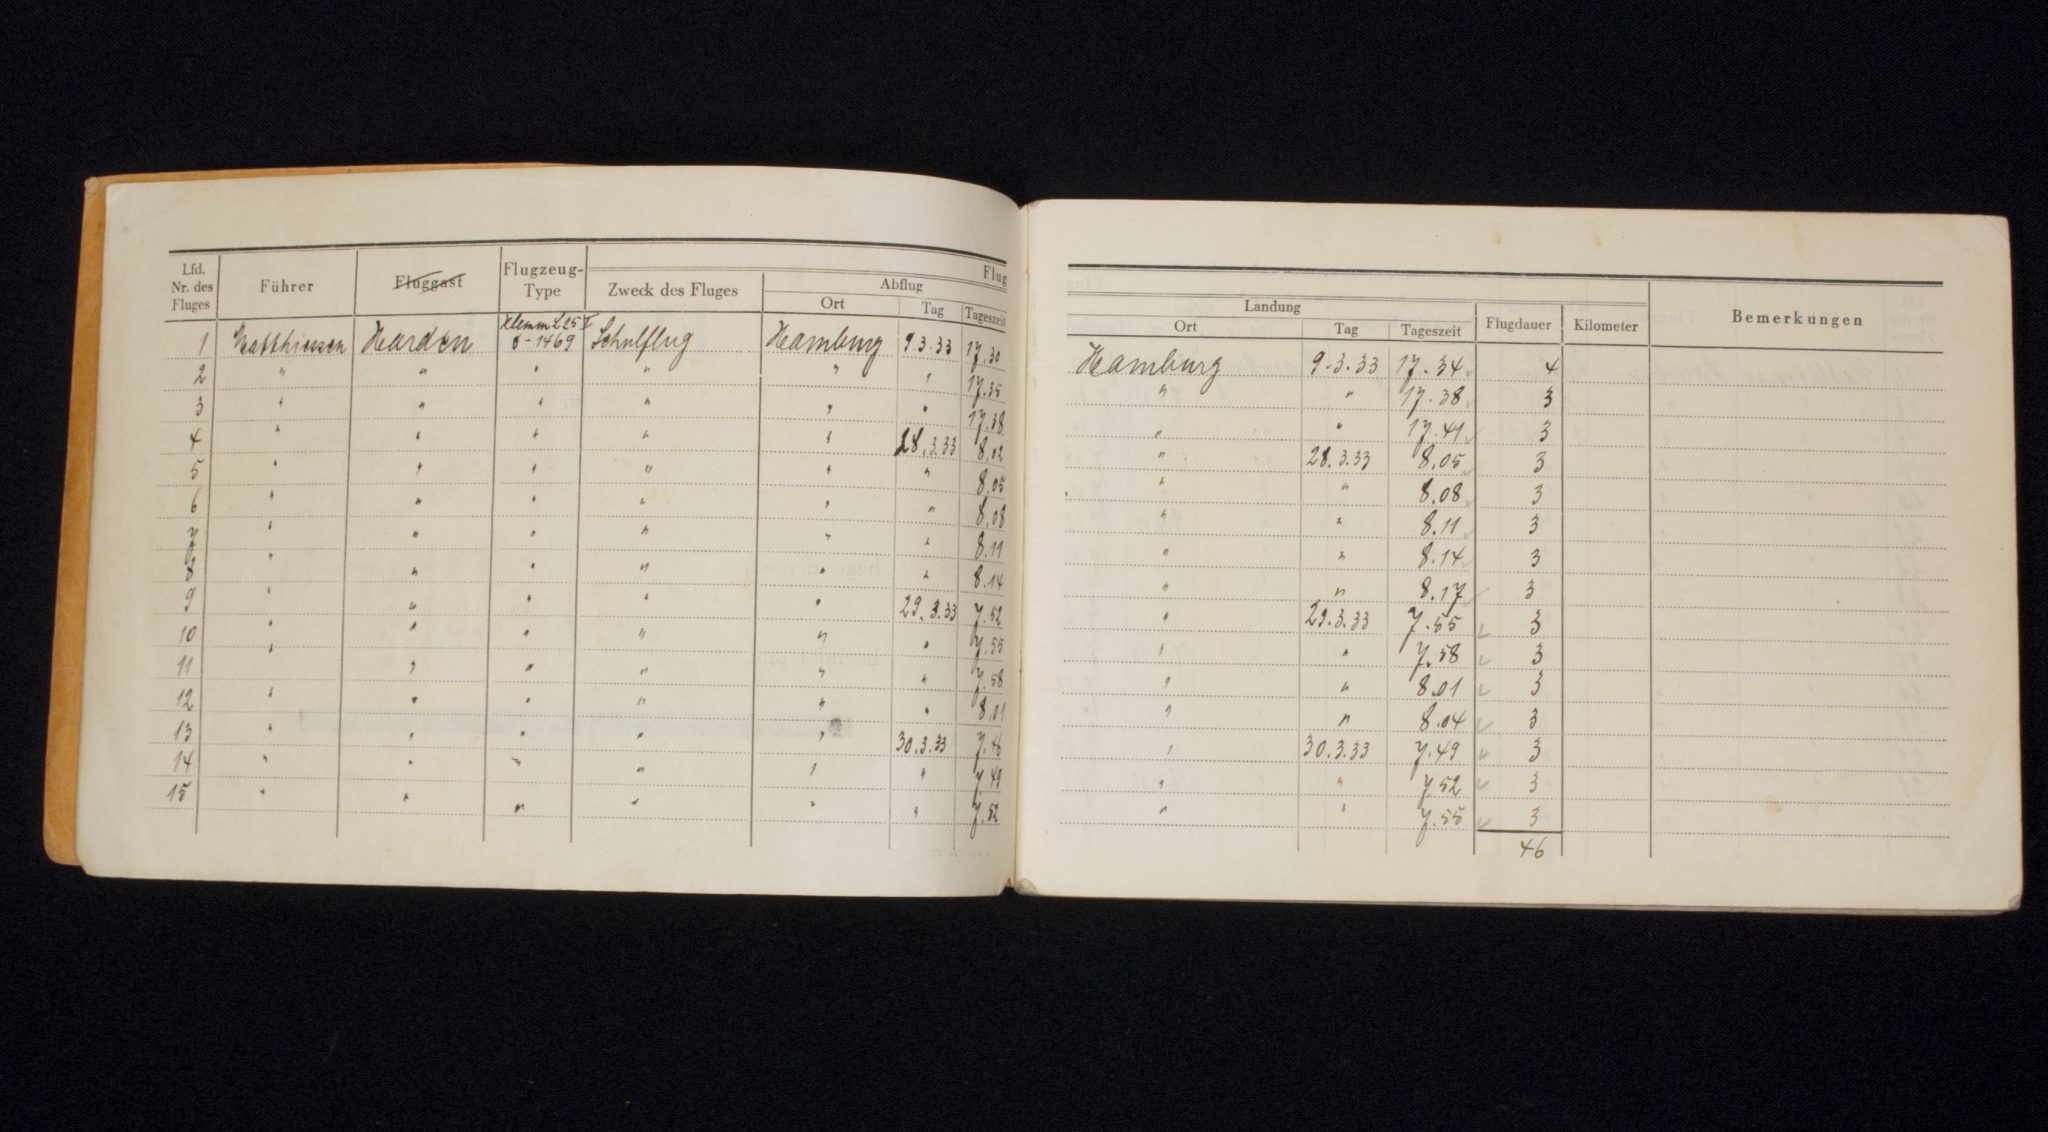 Flug
Lfd. Nr. des Fluges Führer Fluggast Flugzeug-Type Zweck des Fluges Abflug
Ort Tag Tageszeit
Landung Flugdauer Kilometer Bemerkungen
Ort Tag Tageszeit
Klemm L 25 I
1 Harden D-1469 Schulflug Hamburg 9.3.33 17.30 Hamburg 9.3.33 17.34 4
2 " " " " " " 17.35 " " 17.38 3
3 " " " " " " 17.38 " " 17.41 3
4 " " " " " 28.3.33 8.02 " 28.3.33 8.05 3
5 " " " " " " 8.05 " " 8.08 3
6 " " " " " " 8.08 " " 8.11 3
7 " " " " " " 8.11 " " 8.14 3
8 " " " " " " 8.14 " " 8.17 3
9 " " " " " 29.3.33 7.52 " 29.3.33 7.55 3
10 " " " " " " 7.55 " " 7.58 3
11 " " " " " " 7.58 " " 8.01 3
12 " " " " " " 8.01 " " 8.04 3
13 " " " " " 30.3.33 7.46 " 30.3.33 7.49 3
14 " " " " " " 7.49 " " 7.52 3
15 " " " " " " 7.52 " " 7.55 3
46